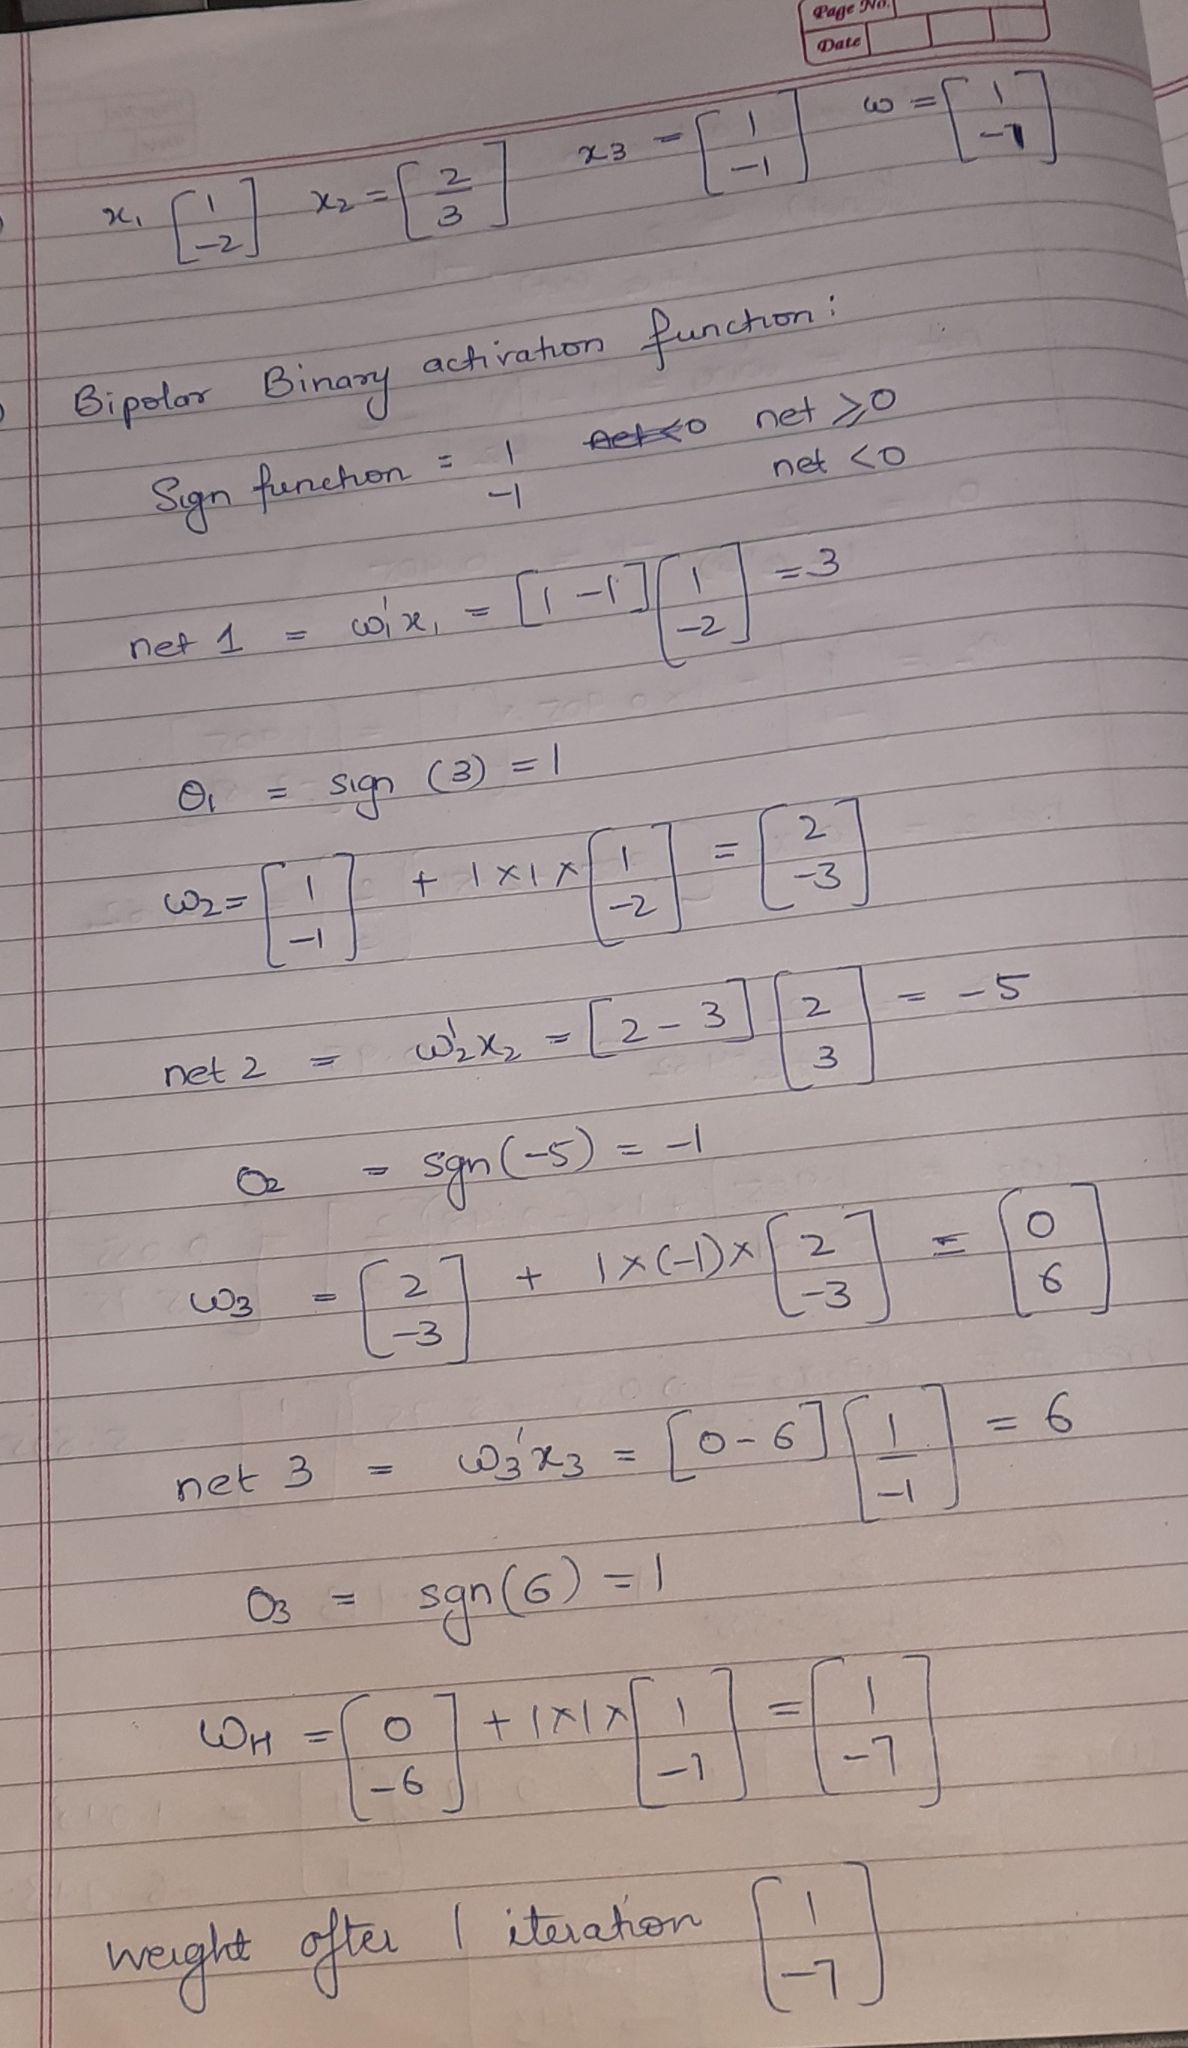 Page No.
Date
x₁ [1 -2] x₂ = [2 3] x3 = [1 -1] ω = [1 -1]
Bipolar Binary activation function:
Sign function = 1 net ⩾0
-1 net <0
net 1 = ω₁'x₁ = [1 -1] [1 -2] = 3
O₁ = sign (3) = 1
ω₂ = [1 -1] + 1×1× [1 -2] = [2 -3]
net 2 = ω₂'x₂ = [2 - 3] [2 3] = -5
O₂ = sgn(-5) = -1
ω₃ = [2 -3] + 1×(-1)× [2 -3] = [0 6]
net 3 = ω₃'x₃ = [0-6] [1 -1] = 6
O₃ = sgn(6) = 1
ω₄ = [0 -6] + 1×1× [1 -1] = [1 -7]
weight after 1 iteration [1 -7]